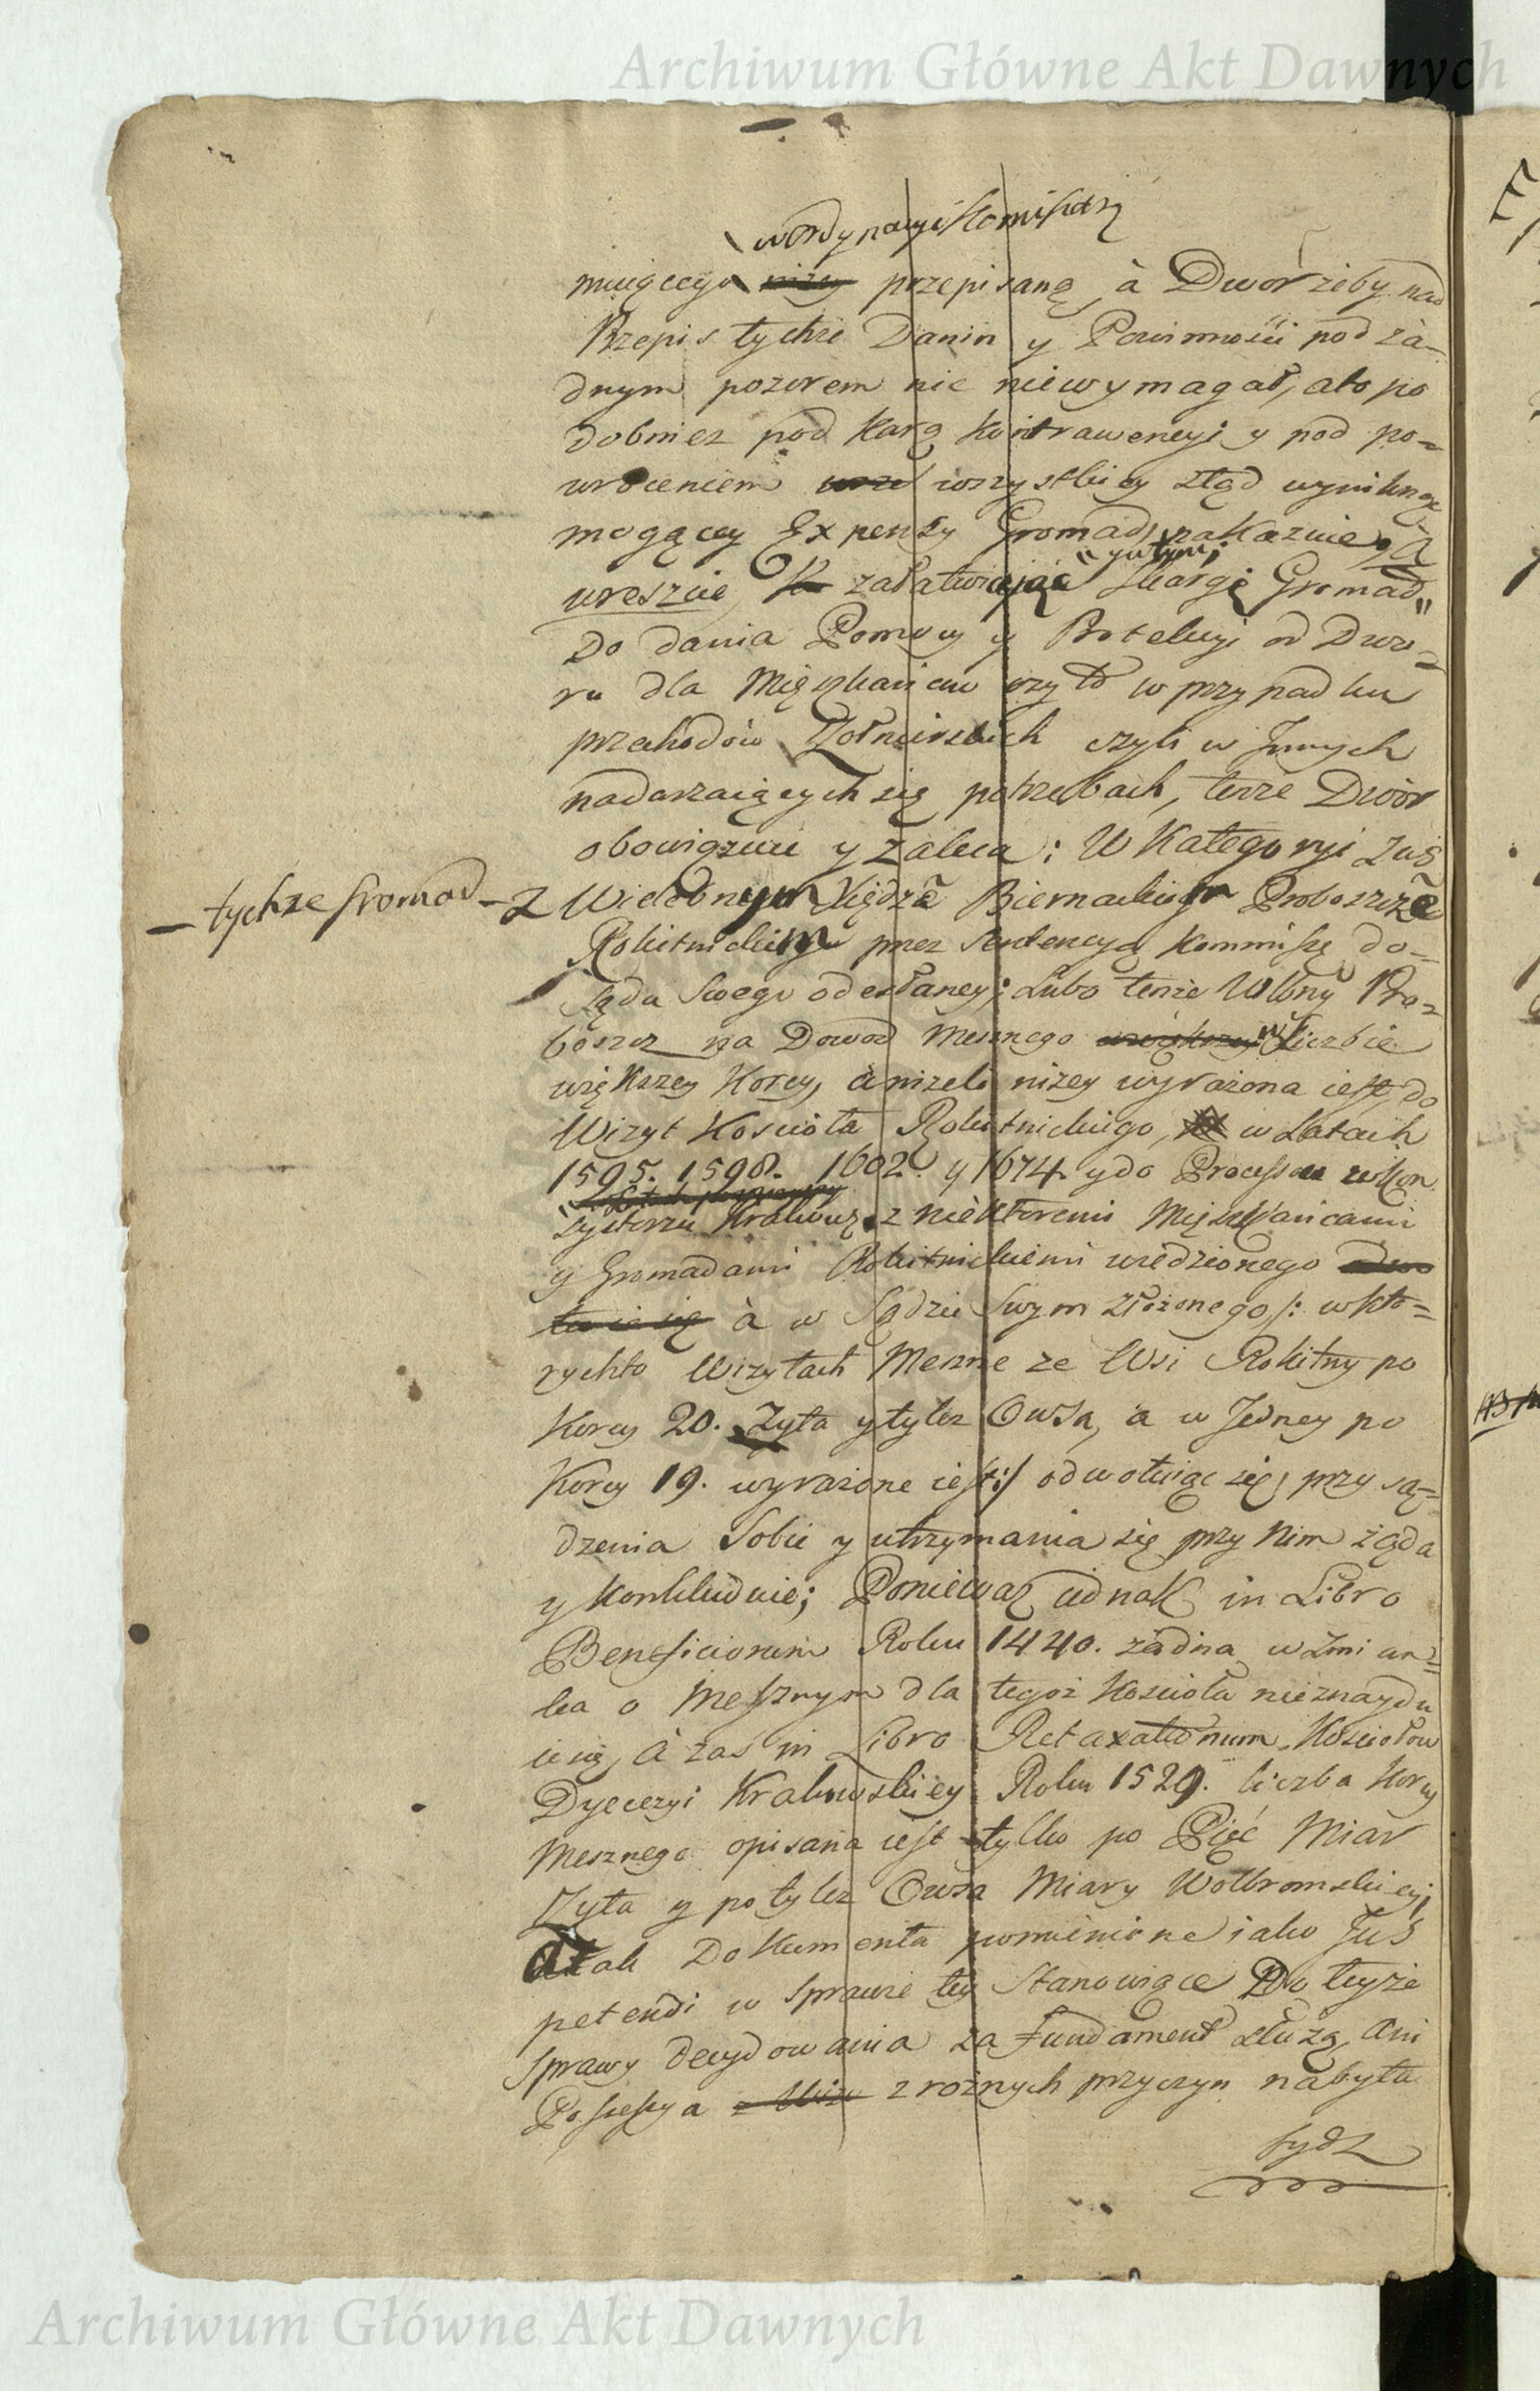 Archiwum Główne Akt Dawnych
w Ordynacyi Komissarzy
muiącego niżey przepisaną, à Dwór żeby nad
Przepis tychże Danin y Powinności pod ża-
dnym pozorem nic niewymagał, ato po
dobnież pod Karą Kontrawencyi y pod po=
wroceniem wszystkiey ztąd wyniknąć
mogącey Expensy Gromad, zakazuie, a
wreszcie, załatwiaiąc y w tym Skargę Gromad
Do dania Pomocy y Protekcyi od Dwo=
ru dla Mięszkańców czyto w przypadku
przechodów Żołnierskich czyli w Innych
nadarzaiących się potrzebach, tenże Dwór
obowiązuie y zaleca: W Kategoryi zaś
– tychże Gromad – z Wielebnym Xiędzem Biernackim Proboszczem
Rokitnickim przez Sentencyą Kommissyi do=
Sądu Swego odesłaney; Lubo tenże Wlbny Pro=
boszcz na Dowod Mesznego w Liczbie
większey Korcy, aniżeli niżey wyrażona iest, do
Wizyt Kościoła Rokitnickiego, w Latach
1595. 1598. 1602. y 1674. y do Processu w Kon
systorzu Krakows. z niektoremi Mięszkańcami
y Gromadami Rokitnickiemi wiedzionego
à w Sądzie Swym złożonego /: w kto=
rychto Wizytach Meszne ze Wsi Rokitny po
Korcy 20. Żyta y tyleż Owsa, a w Jedney po
Korcy 19. wyrażone iest :/ odwołuiąc się, przy są=
dzenia Sobie y utrzymania się przy Nim żąda
y Konkluduie; Ponieważ iednak in Libro
Beneficiorum Roku 1440. żadna wzmian=
ka o Mesznym dla tegoż Kościoła nieznaydu
ie się, à zaś in Libro Retaxationum Kościołow
Dyecezyi Krakowskiey Roku 1529. liczba Korcy
Mesznego opisana iest tylko po Pięć Miar
Żyta y po tyleż Owsa Miary Wolbromskiey;
a tak Dokumenta pomienione iako Jus
petendi w Sprawie tey Stanowiące Do teyże
Sprawy decydowania za Fundament służą, Ani
Possessya z rożnych przyczyn nabyta
bydź
Archiwum Główne Akt Dawnych